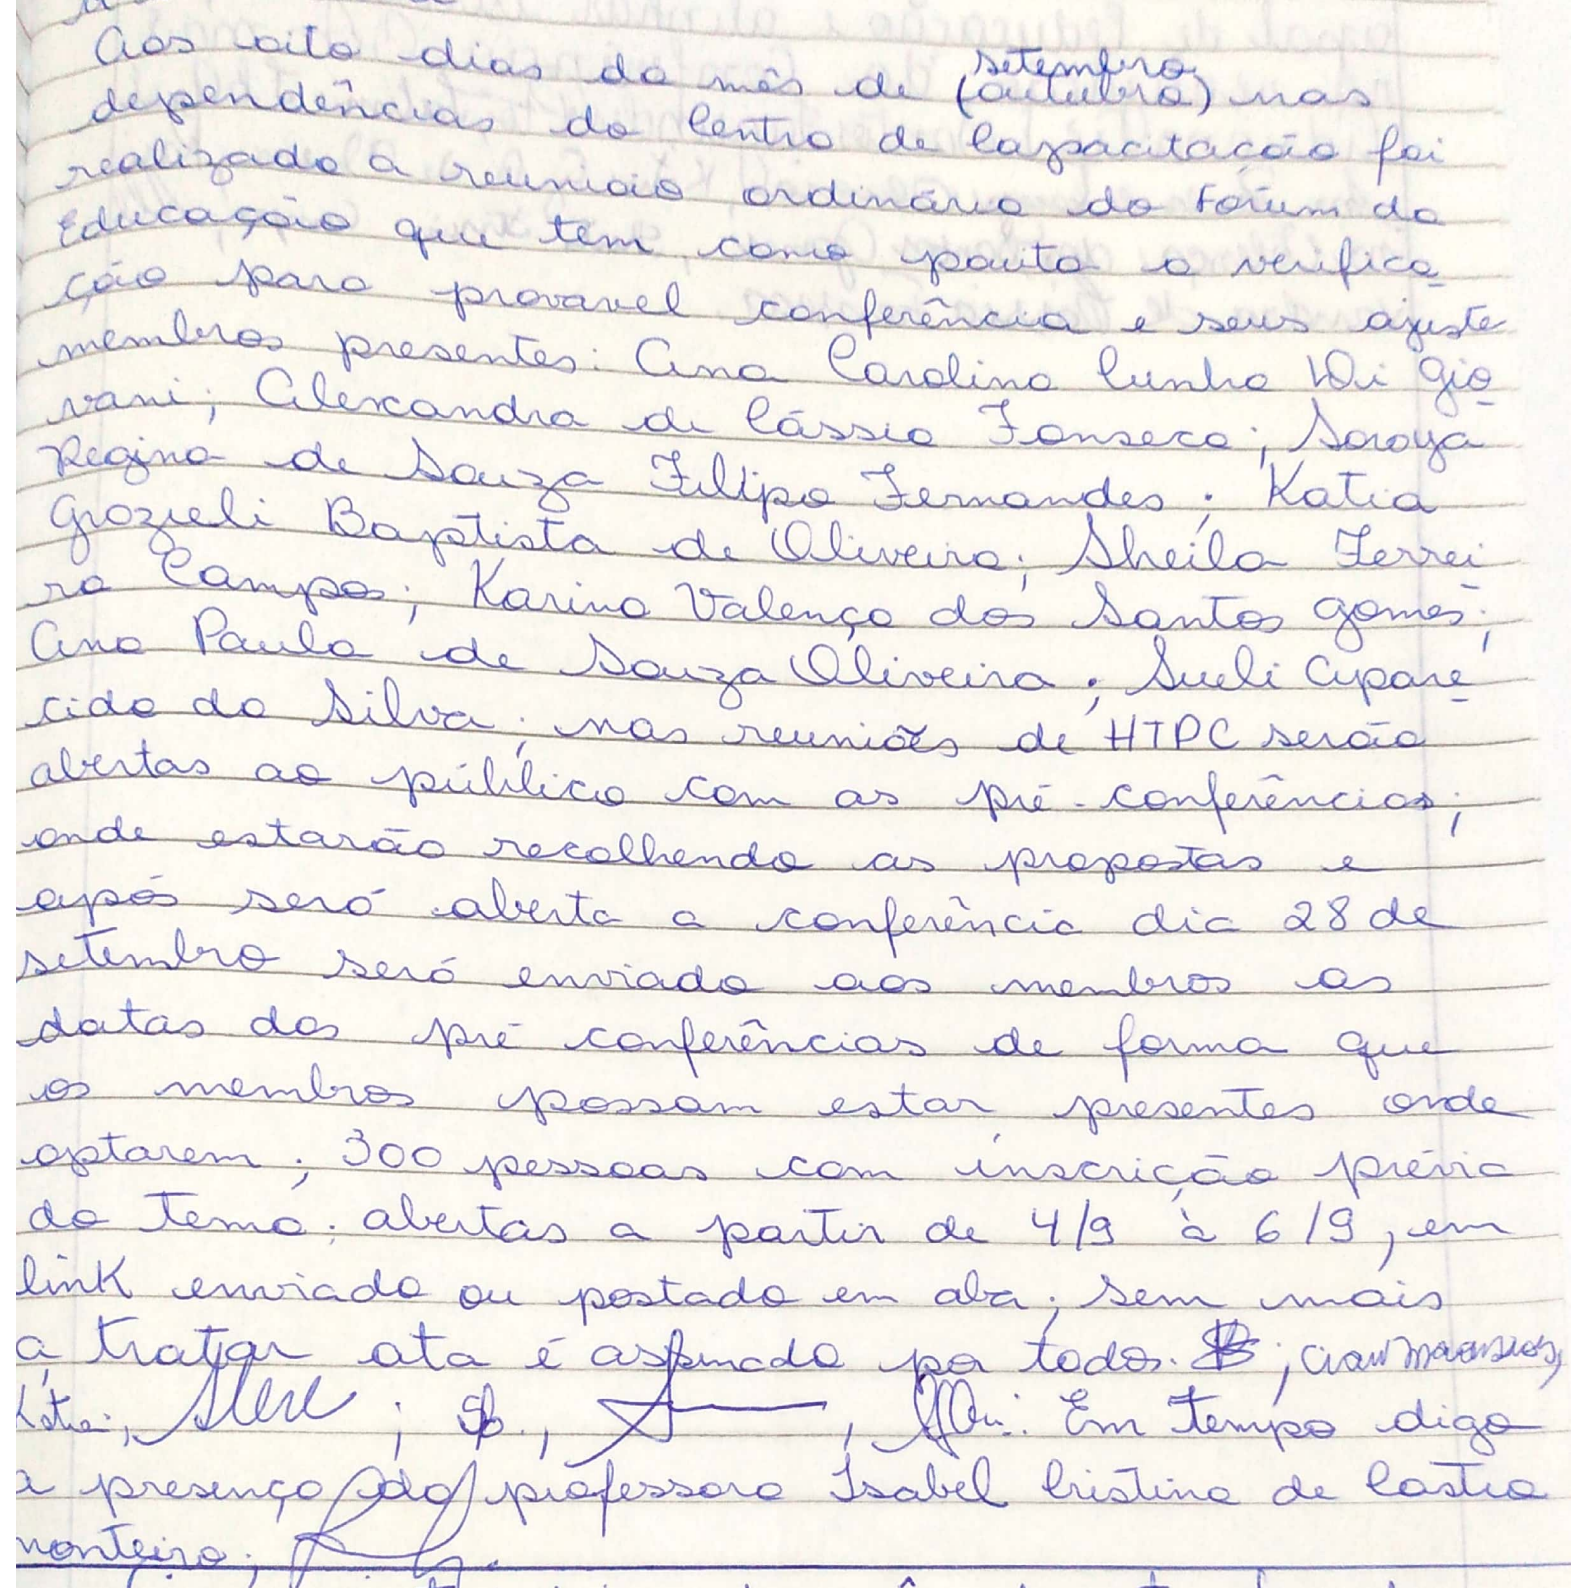 Aos oito dias do mês de (outubro) setembro nas
dependências do Centro de Capacitação foi
realizado a reunião ordinária do Fórum da
Educação que tem como pauta a verifica
ção para provavel conferência e seus ajuste
membros presentes: Ana Carolina Cunha Di Gio
vani; Alexandra de Cássia Fonseca; Soraya
Regina de Souza Filipo Fernandes; Katia
Grazieli Baptista de Oliveira; Sheila Ferrei
ra Campos; Karina Valença dos Santos Gomes;
Ana Paula de Souza Oliveira; Sueli Apare
cida da Silva; nas reuniões de HTPC serão
abertas ao público com as pré-conferências;
onde estarão recolhendo as propostas e
após será aberta a conferência dia 28 de
setembro será enviado aos membros as
datas das pré conferências de forma que
os membros possam estar presentes onde
optarem; 300 pessoas com inscrição prévia
do tema; abertas a partir de 4/9 à 6/9, em
link enviado ou postado em aba; sem mais
a tratar ata é assinada por todos.
Em tempo digo
a presença da professora Isabel Cristina de Castro
monteiro;